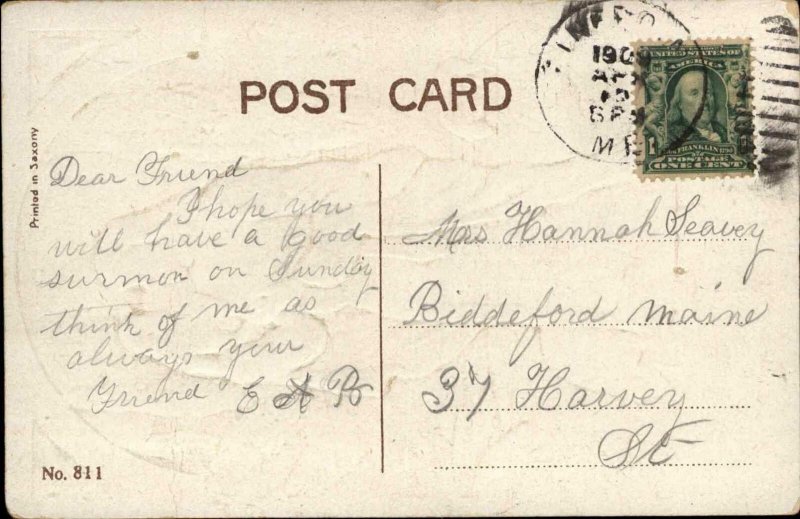 POST CARD
Printed in Saxony
190
APR
M E
UNITED STATES OF
AMERICA
FRANKLIN
POSTAGE
ONE CENT
Dear Friend
I hope you
will have a good
surmon on Sunday
think of me as
always your
Friend E A R
Mrs Hannah Seavey
Biddeford Maine
37 Harvey
St
No. 811